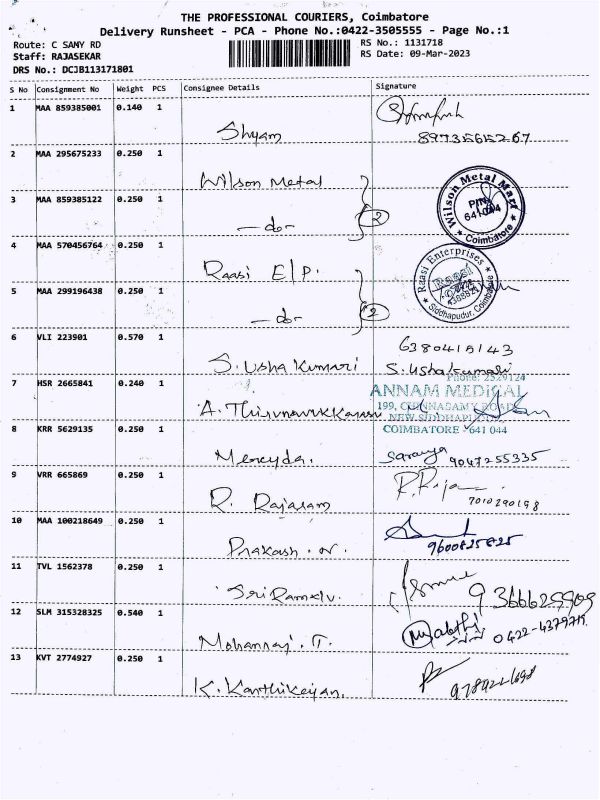 THE PROFESSIONAL COURIERS, Coimbatore
Delivery Runsheet - PCA - Phone No.:0422-3505555 - Page No.:1
Route: C SAMY RD
RS No.: 1131718
Staff: RAJASEKAR
RS Date: 09-Mar-2023
DRS No.: DCJB113171801
S No Consignment No Weight PCS Consignee Details Signature
1 MAA 859385001 0.140 1
Shyam
2 MAA 295675233 0.250 1
Wilson Metal
Wilson Metal Mart
PIN
641 044
Coimbatore
3 MAA 859385122 0.250 1
-do-
2
4 MAA 570456764 0.250 1
Raasi E/P.
Raasi Enterprises
Siddhapudur, Coimbatore
5 MAA 299196438 0.250 1
-do-
2
6 VLI 223901 0.570 1
6380415143
S. Usha Kumari S. Ushakumari
Phone: 2529124
7 HSR 2665841 0.240 1
ANNAM MEDICAL
199, CHINNASAMY ROAD
A. Thirunavukkarasu
NEW SIDDHAPUDUR
COIMBATORE - 641 044
8 KRR 5629135 0.250 1
Saranya 9047255335
9 VRR 665869 0.250 1
R. Rajaram
R. Raja
7010290198
10 MAA 100218649 0.250 1
Prakash . N.
9600825825
11 TVL 1562378 0.250 1
12 SLM 315328325 0.540 1
Mohanraj. T.
0422-4379719
13 KVT 2774927 0.250 1
K. Karthikeiyan.